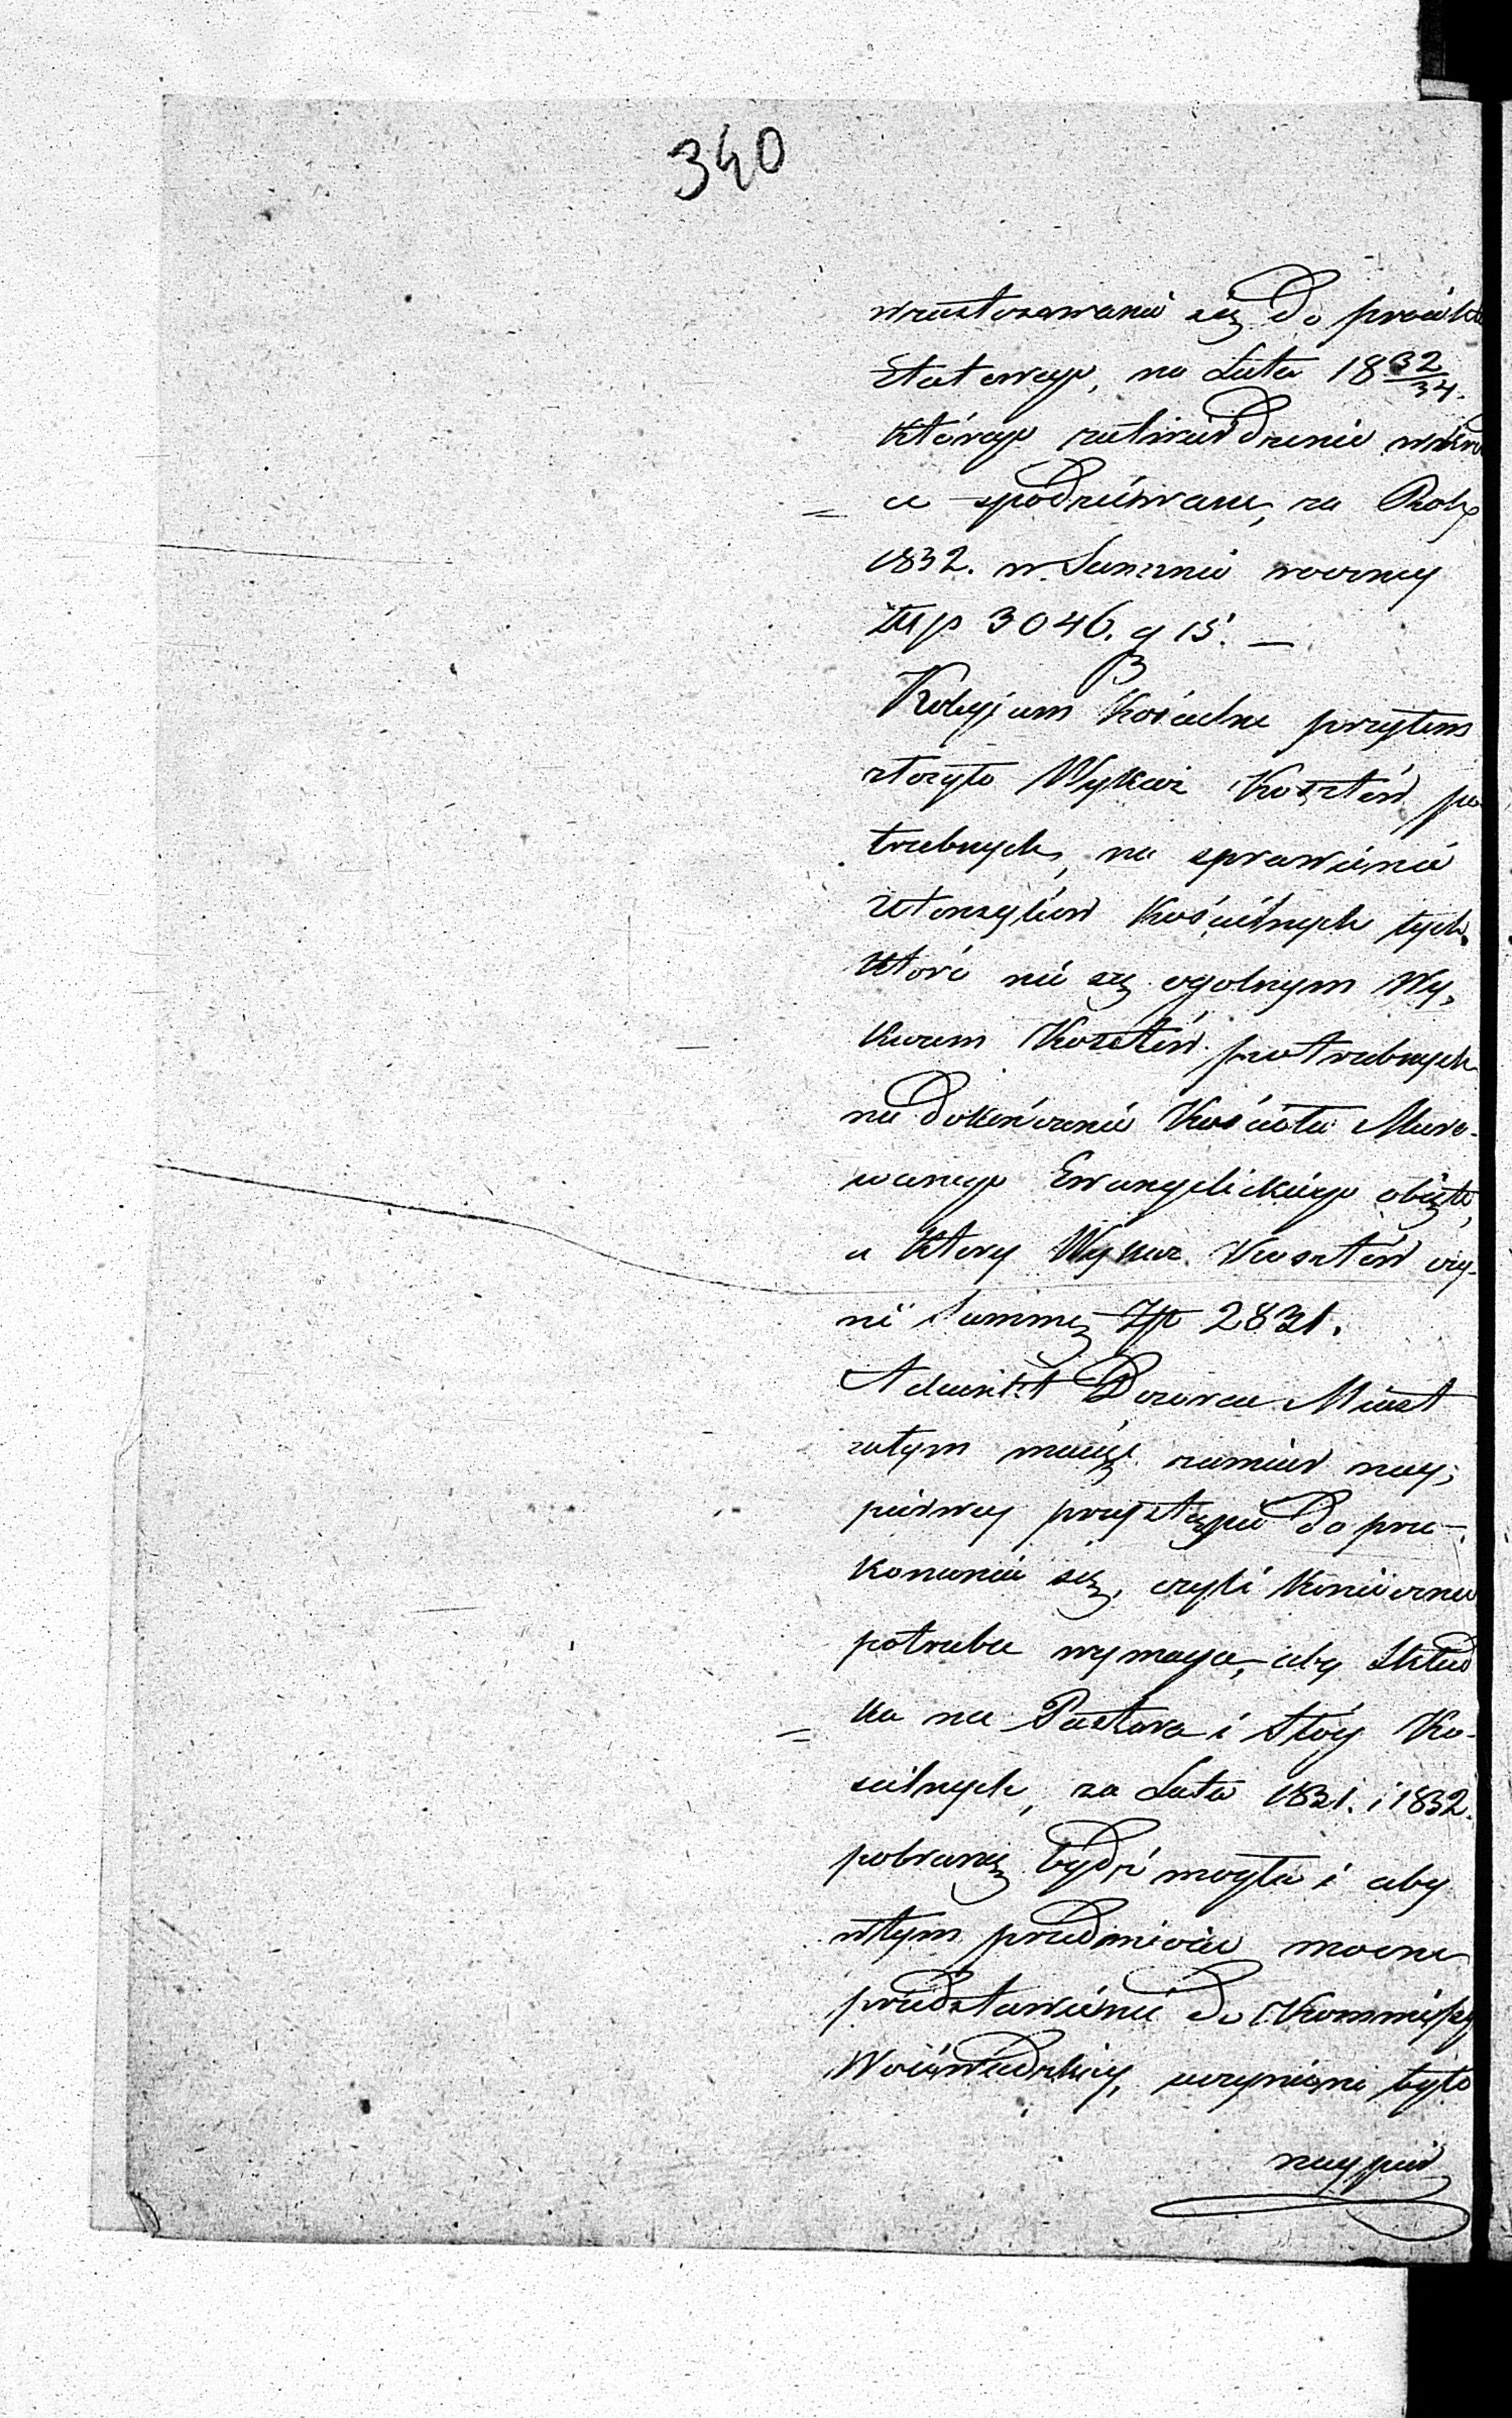 340
w zastosowaniu się do proiektu
Etatowego, na Lata 18 32/34.
którego zatwierdzenie wkrót
ce spodziewane, za Rok
1832. w Summie roczney
Złp 3046. g 15. —
3
Kolegium Kościelne przytem
złożyło Wykaz Kosztów po
trzebnych, na sprawienie
Utensyliów Kościelnych tych,
które nie są ogolnym Wy,
kazem Kosztów potrzebnych
na dokończenie Kościoła Muro-
wanego Ewangelickiego objęte,
a który Wykaz Kosztów czy-
ni Summę Złp 2831.
Adiunkt Dozorca Miast
zatym maiąc zamiar nay,
pierwey przystąpić do prze-
konania się, czyli konieczna
potrzeba wymaga, aby Skład
ka na Pastora i Słóg Ko-
ścielnych, za Lata 1831. i 1832.
pobraną bydź mogła i aby
w tym przedmiocie mocne
przedstawienie do Kommissyi
Woiewódzkiey, uczynione było
naypier